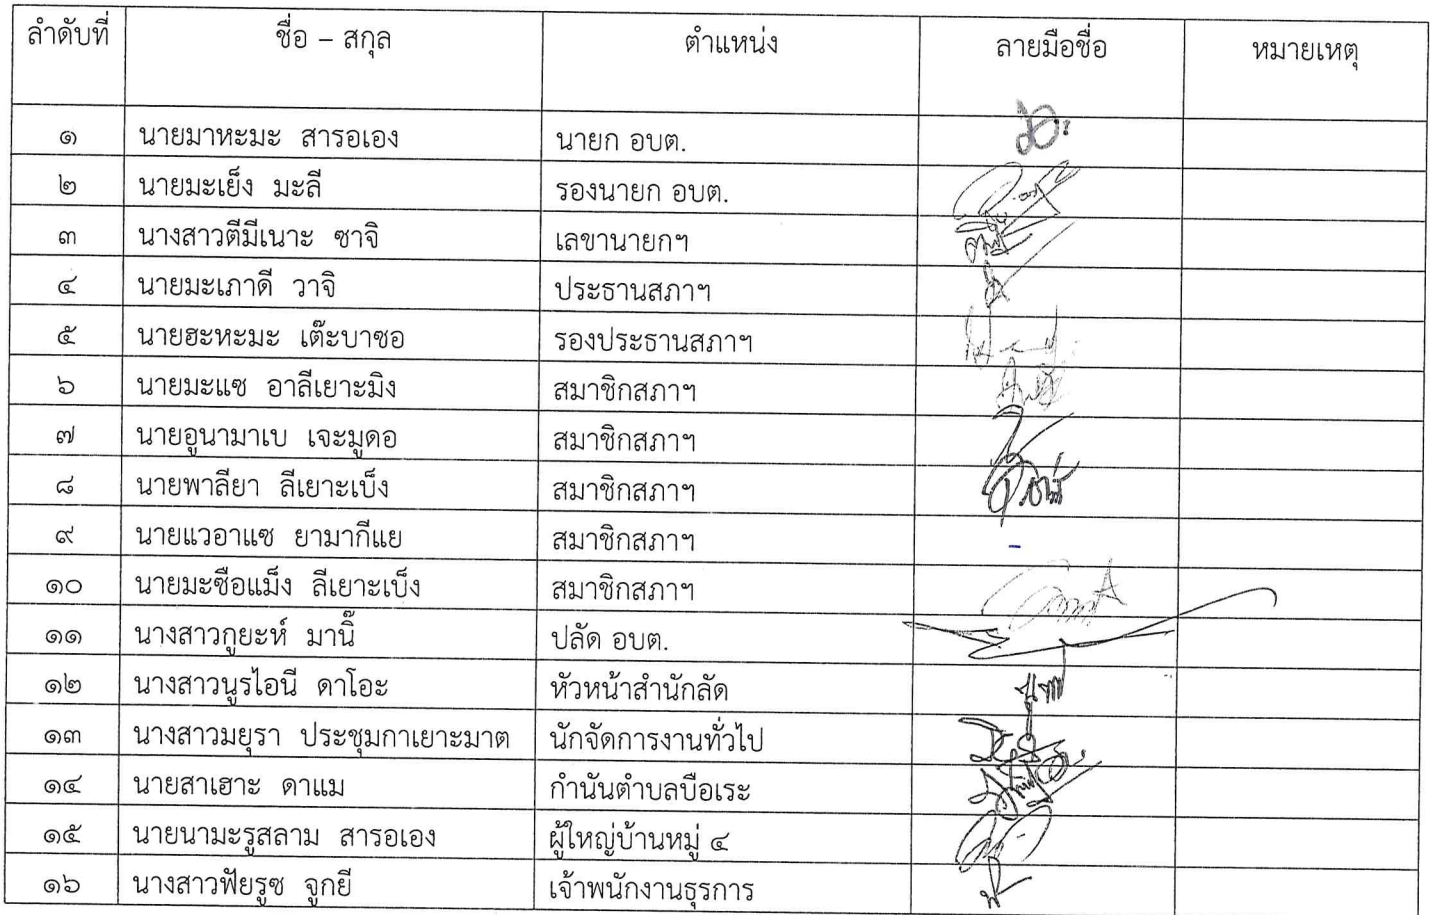 ลำดับที่ ชื่อ – สกุล ตำแหน่ง ลายมือชื่อ หมายเหตุ
๑ นายมาหะมะ สารอเอง นายก อบต.
๒ นายมะเย็ง มะลี รองนายก อบต.
๓ นางสาวตีมีเนาะ ซาจิ เลขานายกฯ
๔ นายมะเภาดี วาจิ ประธานสภาฯ
๕ นายฮะหะมะ เต๊ะบาซอ รองประธานสภาฯ
๖ นายมะแซ อาลีเยาะมิง สมาชิกสภาฯ
๗ นายอูนามาเบ เจะมูดอ สมาชิกสภาฯ
๘ นายพาลียา ลีเยาะเบ็ง สมาชิกสภาฯ
๙ นายแวอาแซ ยามากีแย สมาชิกสภาฯ -
๑๐ นายมะซือแม็ง ลีเยาะเบ็ง สมาชิกสภาฯ
๑๑ นางสาวกูยะห์ มานิ๊ ปลัด อบต.
๑๒ นางสาวนูรไอนี ดาโอะ หัวหน้าสำนักลัด
๑๓ นางสาวมยุรา ประชุมกาเยาะมาต นักจัดการงานทั่วไป
๑๔ นายสาเฮาะ ดาแม กำนันตำบลบือเระ
๑๕ นายนามะรูสลาม สารอเอง ผู้ใหญ่บ้านหมู่ ๔
๑๖ นางสาวฟัยรูซ จูกยี เจ้าพนักงานธุรการ